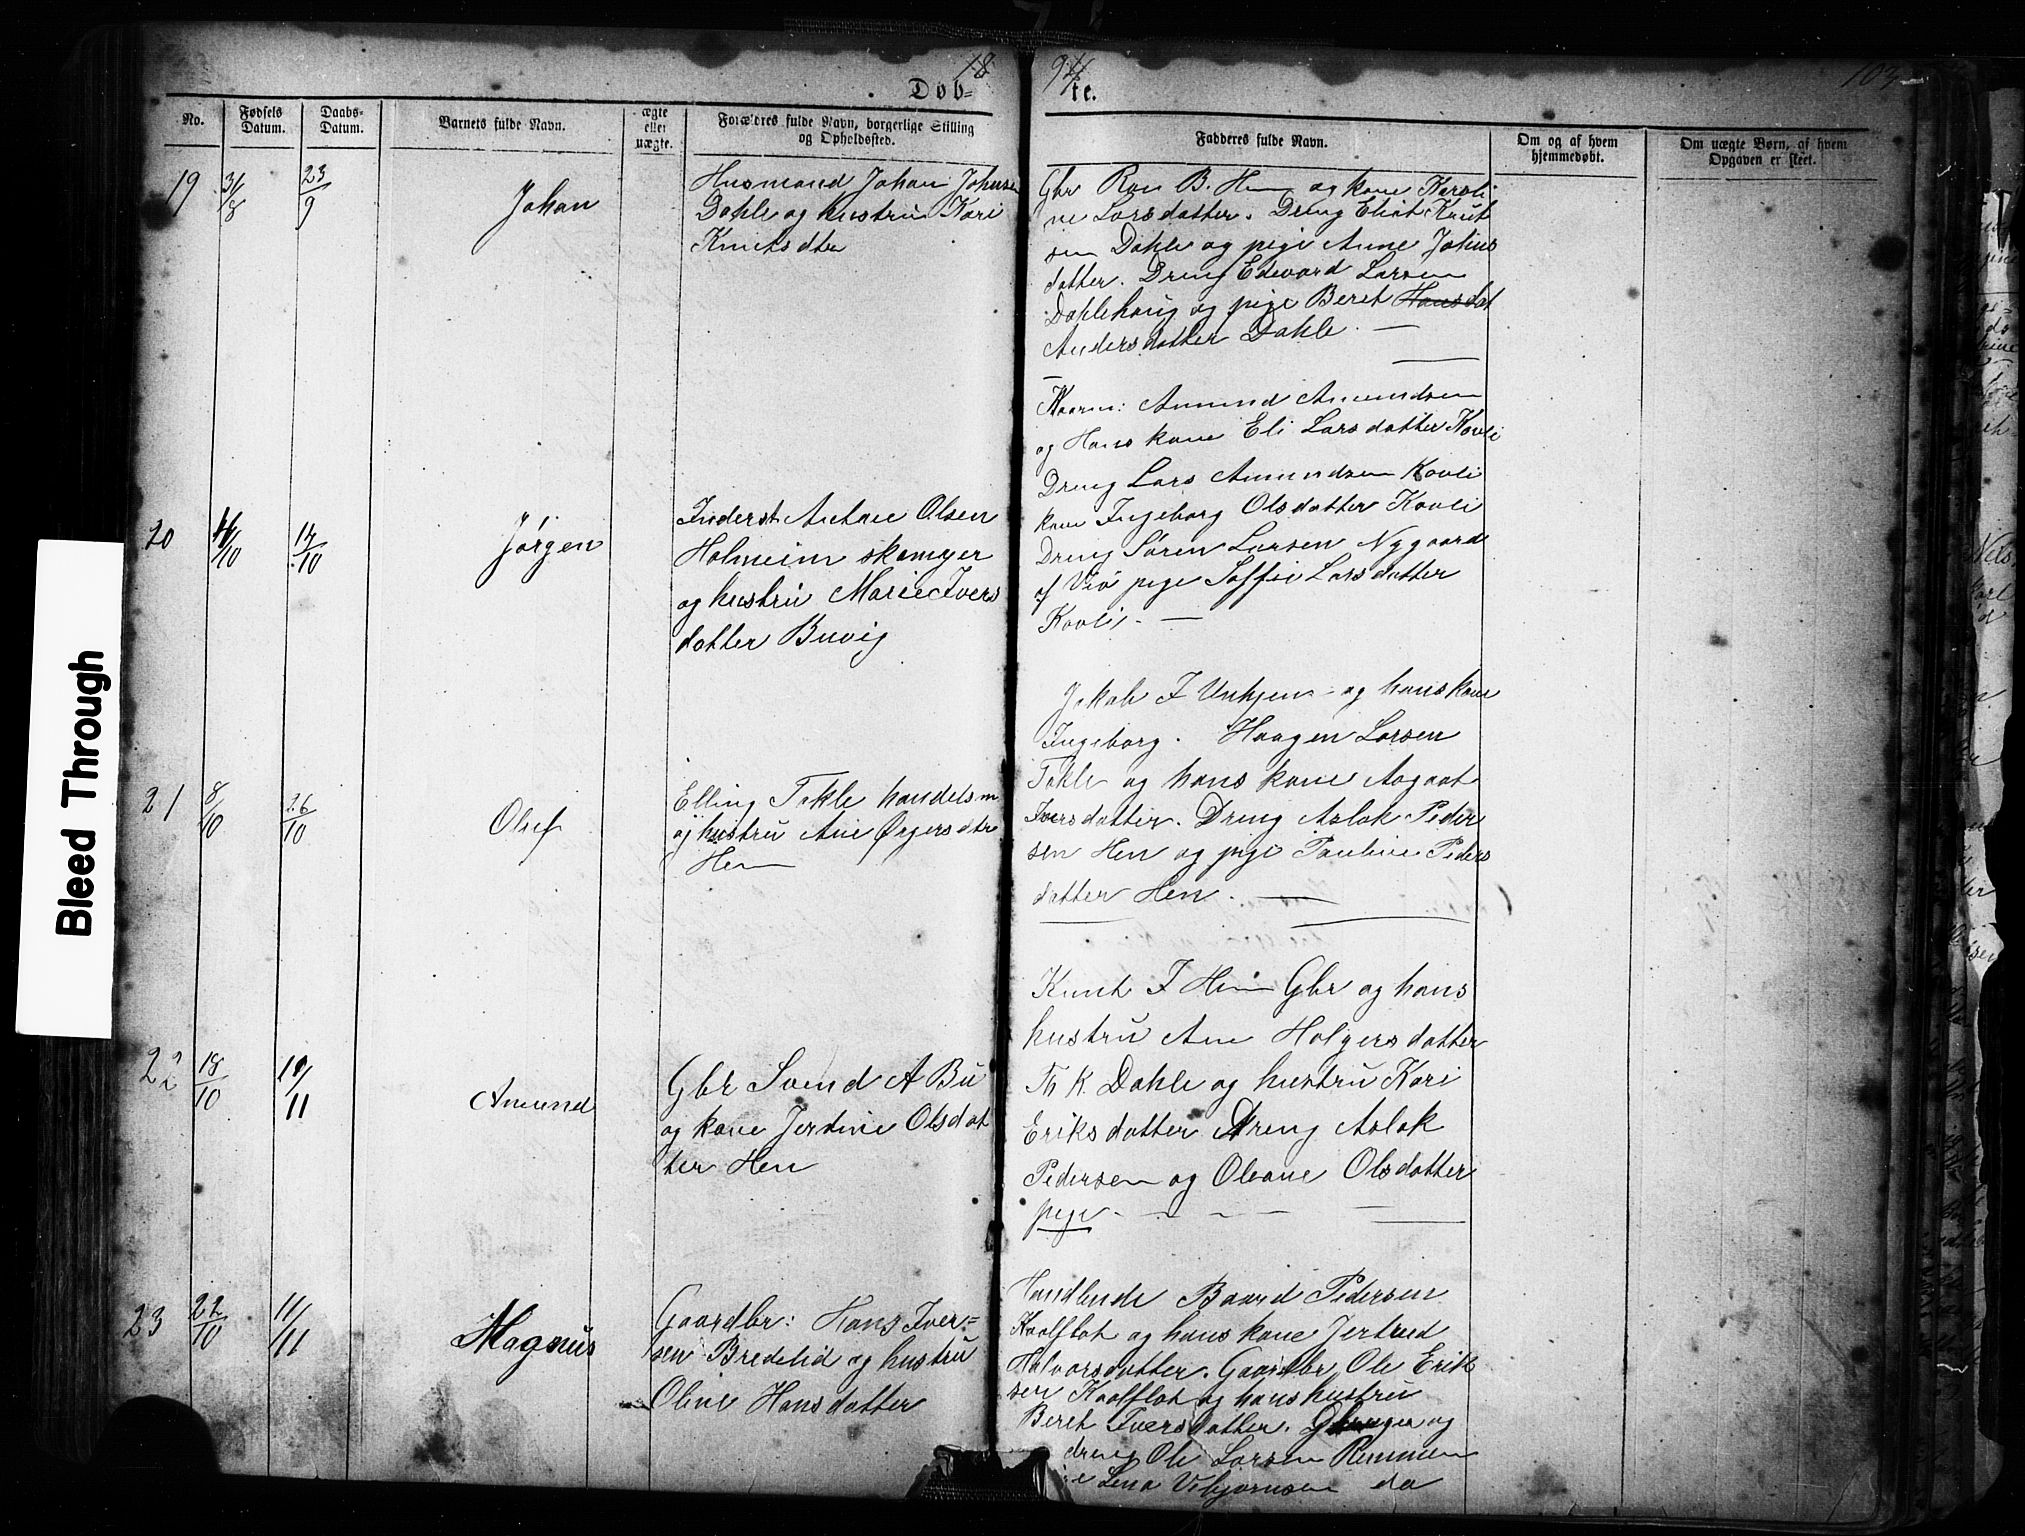 18
94
103
Døb-
te.
No.
Fødsels Datum.
Daabs- Datum.
Barnets fulde Navn.
ægte eller uægte.
Forældres fulde Navn, borgerlige Stilling og Opholdssted.
Fadderes fulde Navn.
Om og af hvem hjemmedøbt.
Om uægte Børn, af hvem Opgaven er skeet.
19
31/8
23/9
Johan
Husmand Johan Johnsen
Dahle og hustru Kari
Knutsdtr
Gbr B. Hen og kone Karoli
ne Larsdatter. Dreng Knut
sen Dahle og pige Anne Johns
datter. Dreng Edvard Larsen
Dahlehaug og pige Beret Hansdat
Andersdatter Dahle. —
20
4/10
14/10
Jørgen
Inderst Antone Olsen
Holmeim skomger
og hustru Marie Ivers
datter Buvig
Amund Amundsen
og Hans kone Eli Larsdatter Kovli
Dreng Lars Amundsen Kovli
kone Ingeborg Olsdatter Kovli
Dreng Søren Larsen Nygaard
af Viö pige Soffie Larsdatter
Kovli. —
21
8/10
26/10
Oluf
Elling Tokle handelsm
og hustru Ane Ørgersdtr
Hen
Jakob I Unhjem og hans kone
Ingeborg. Haagen Larsen
Tokle og hans kone Aagaat
Iversdatter. Dreng Aslak Peder
sen Hen og pige Pauline Peders
datter Hen. —
22
18/10
10/11
Amund
Gbr Svend A Bu
og kone Jertine Olsdat
ter Hen
Knut I Hen Gbr og hans
hustru Ane Holgersdatter
Th K. Dahle og hustru Kari
Eriksdatter Dreng Aslak
Pedersen og Oleane Olsdatter
pige. —
23
22/10
11/11
Magnus
Gaardbr: Hans Iver=
sen Bredelid og hustru
Oline Hansdatter
Handlende Baard Pedersen
Kaalflot og hans kone Jertrud
Halvorsdatter. Gaardbr Ole Erik
sen Kaalflot og hans hustru
Beret Iversdatter. og
dreng Ole Larsen Remmem
Lina Vebjørnsen do
Bleed Through